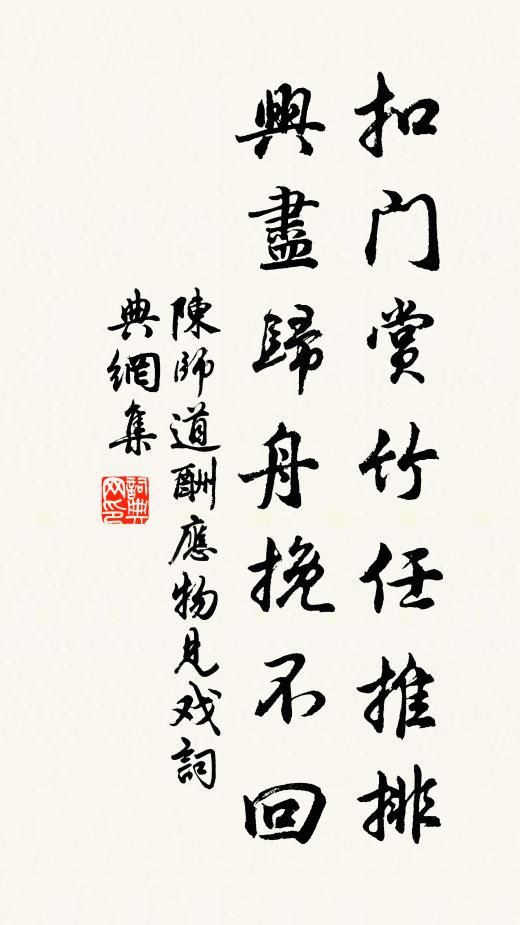 扣門賞竹任推排
興盡歸舟挽不回
陳師道酬應物見戏詞
典網集
詞典
网印